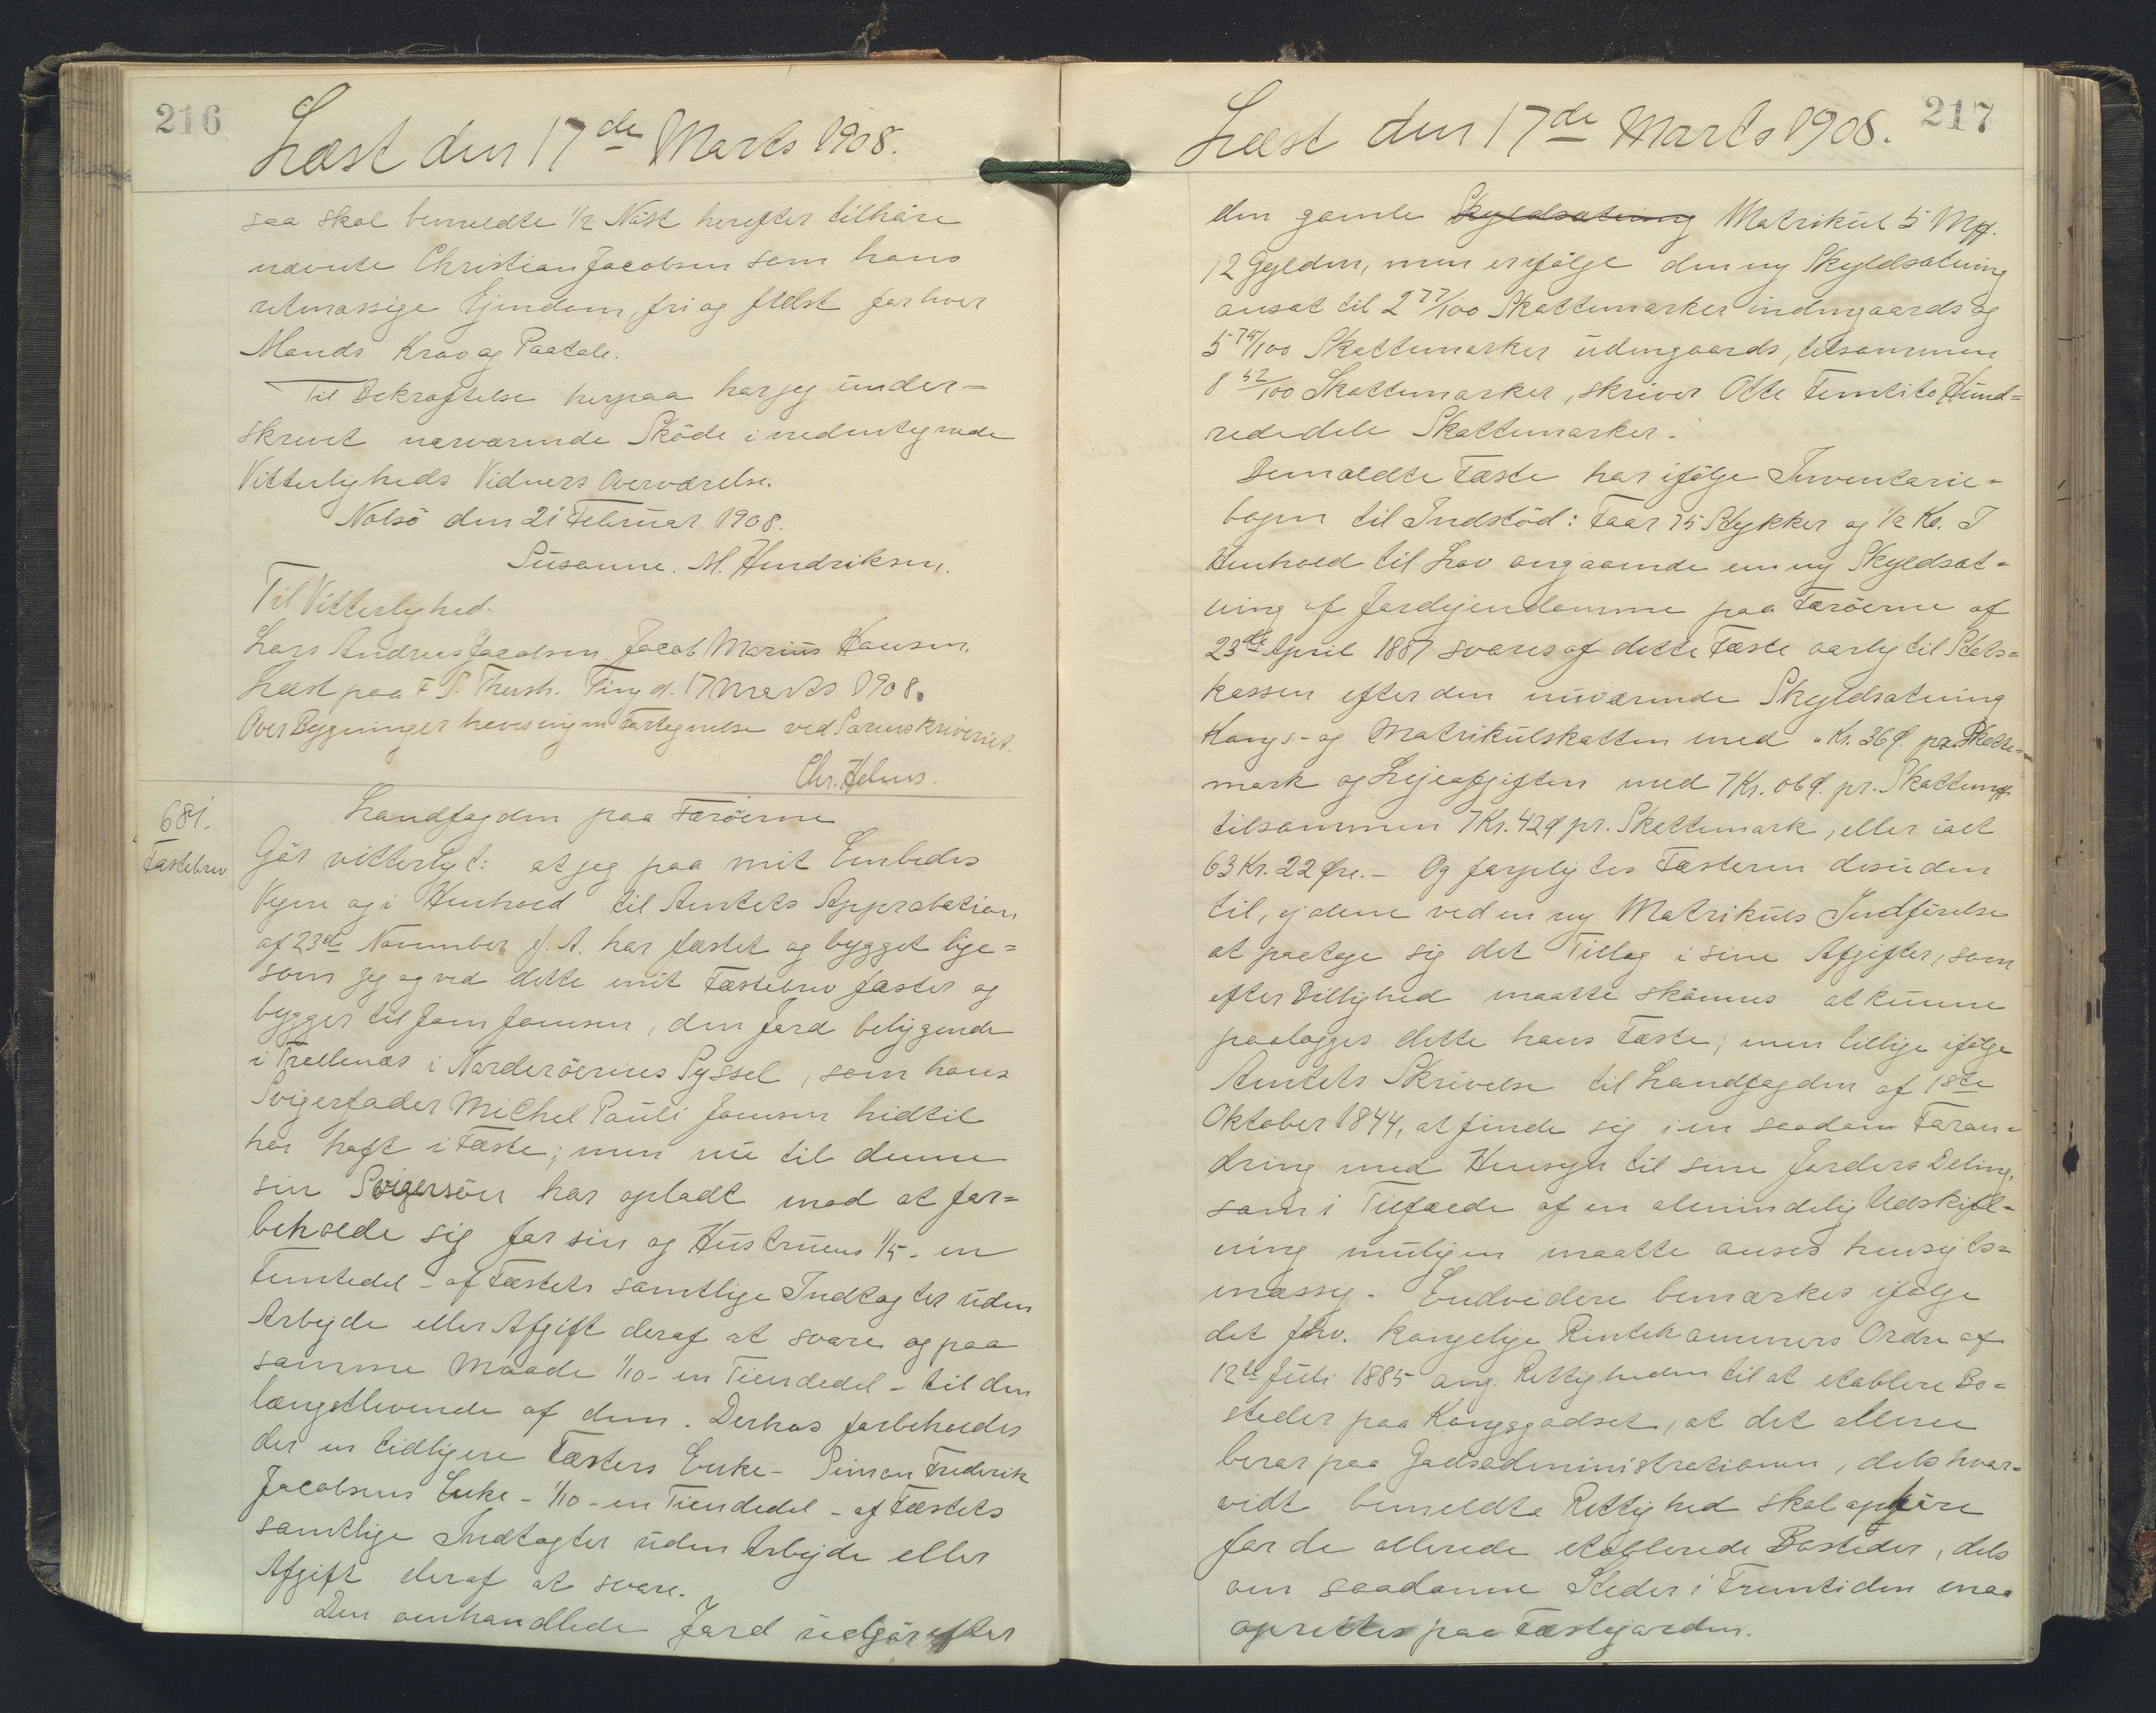 216
Læst den 17de Marts 1908.
saa skal bemeldte 1/2 Nöst herefter tilhöre
nævnte Christian Jacobsen som hans
retmæssige Ejendom, fri og frelst for hver
Mands Krav og Paatale.
Til Bekræftelse herpaa har jeg under=
skrevet nærværende Sköde i nedentegnede
Vitterligheds Vidners Overværelse.
Nolsö den 21 Februar 1908.
Susanne. M. Hendriksen.
Til Vitterlighed:
Lars Andreas Jacobsen. Jacob Marius Hansen.
Læst paa F. S. Thersh. Ting d. 17 Marts 1908.
Over Bygninger haves ingen Fortegnelse ved Sorenskriveriet.
Chr. Helms.
681.
Fæstebrev.
Landfogden paa Færöerne
Gör vitterligt: at jeg paa mit Embedes
Vegne og i Henhold til Amtets Approbation
af 23de November f. A. har fæstet og bygget lige=
som jeg og ved dette mit Fæstebrev fæster og
bygger til Joen Joensen, den Jord beliggende
i Trellenæs i Norderöernes Syssel, som hans
Svigerfader Michel Pauli Joensen hidtil
har haft i Fæste; men nu til denne
sin Svigersön har opladt mod at for=
beholde sig for sin og Hustruens 1/5 - en
Femtedel - af Fæstets samtlige Indtægter uden
Arbejde eller Afgift deraf at svare og paa
samme Maade 1/10 - en Tiendedel - til den
længstlevende af dem. Derhos forbeholdes
der en tidligere Fæsters Enke - Simon Frederik
Jacobsens Enke - 1/10 - en Tiendedel - af Fæstets
samtlige Indtægter uden Arbejde eller
Afgift deraf at svare.
Den omhandlede Jord udgör efter
217
Læst den 17de Marts 1908.
den gamle Skyldsætning Matrikul 5 Mrk.
12 Gylden, men er ifölge den ny Skyldsætning
ansat til 2 77/100 Skattemarker indengaards og
5 75/100 Skattemarker udengaards, tilsammen
8 52/100 Skattemarker, skriver Otte Femtito Hund=
rededele Skattemarker.
Bemældte Fæste har ifölge Inventarie=
bogen til Indstöd: Faar 75 Stykker og 1/2 Ko. I
Henhold til Lov angaaende en ny Skyldsæt=
ning af Jordejendomme paa Færöerne af
23de April 1887 svares af dette Fæste aarlig til Stats=
kassen efter den nuværende Skyldsætning
Kongs- og Matrikulskatten med " Kr. 36 Ø. pr. Skatte=
mark og Lejeafgiften med 7 Kr. 06 Ø. pr. Skattemrk.
tilsammen 7 Kr. 42 Ø pr. Skattemark, eller ialt
63 Kr. 22 Øre. - Og forpligtes Fæsteren desuden
til, ej alene ved en ny Matrikuls Indförelse
at paatage sig det Tillæg i sine Afgifter, som
efter Billighed maatte skönnes at kunne
paalægges dette hans Fæste; men tillige ifölge
Amtets Skrivelse til Landfogden af 18te
Oktober 1844, at finde sig i en saadan Foran=
dring med Hensyn til sine Jorders Deling,
som i Tilfælde af en almindelig Udskift=
ning muligen maatte anses hensigts=
mæssig. Endvidere bemærkes ifölge
det forv. kongelige Rentekammers Ordre af
12te Juli 1885 ang. Rettigheden til at etablere Bo=
steder paa Kongsgodset, at det allene
beror paa Godsadministrationen, dels hvor=
vidt bemeldte Rettighed skal ophöre
for de allerede etablerede Bosteder, dels
om saadanne Steder i Fremtiden maa
oprettes paa Fæstejorden.